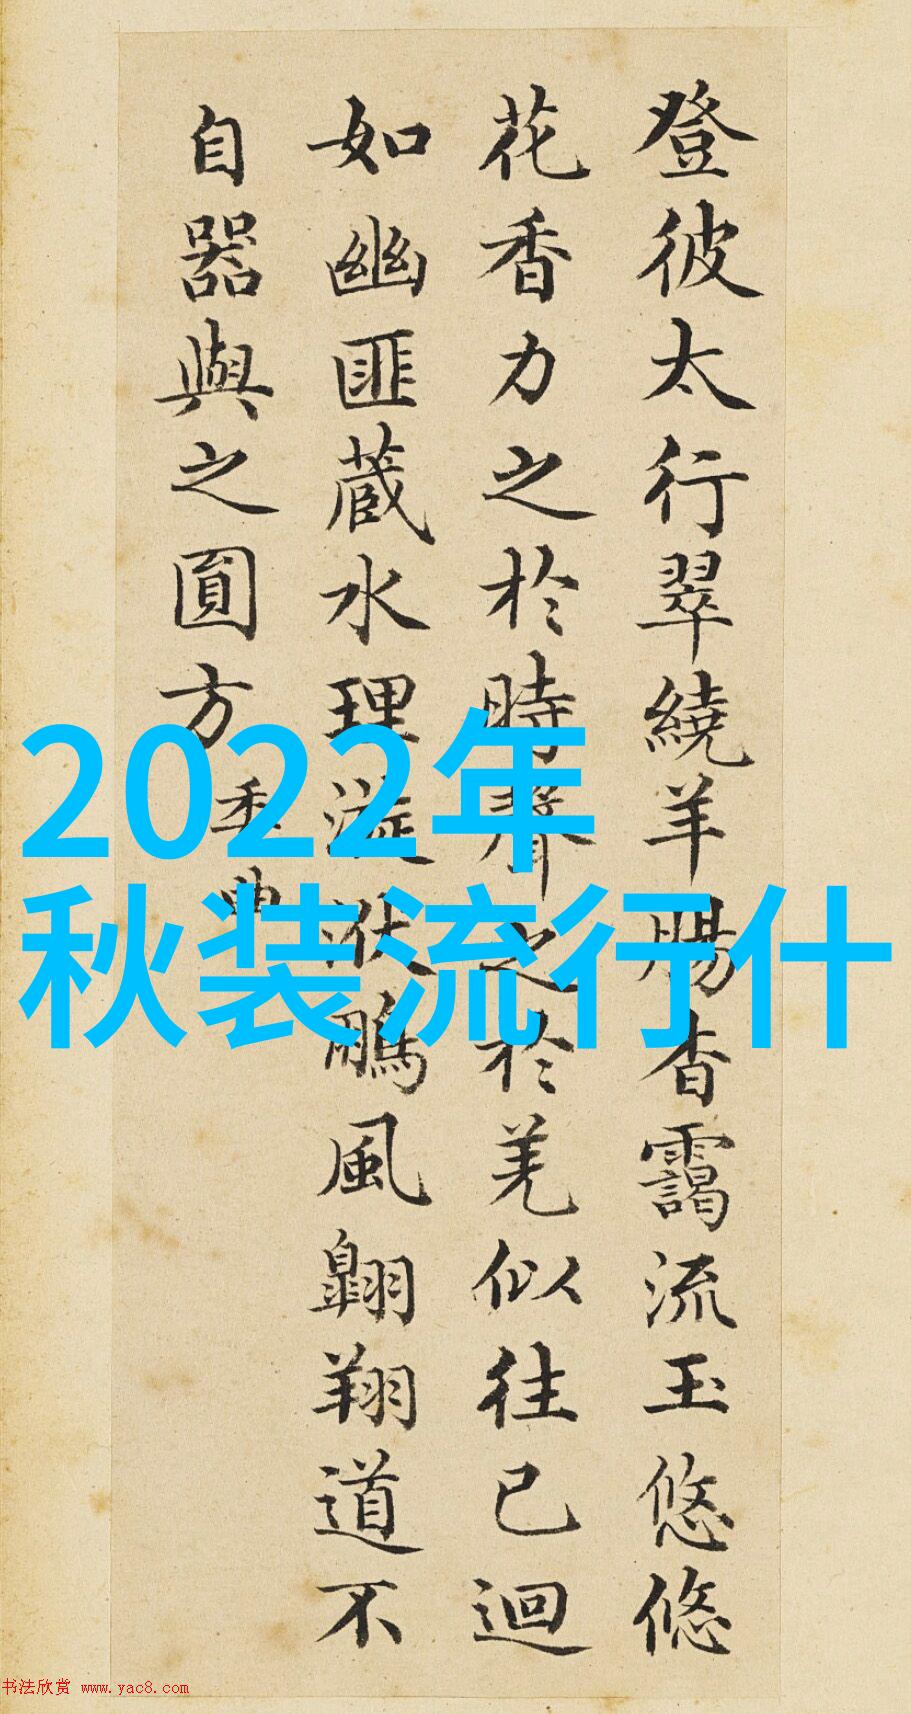 登彼太行翠繞羊腸杳靄流玉悠悠
花香力之於時聲之於羌似往已迴
如幽匪蔵水理漩洑鵬風翺翔道不
自器與之圓方
委曲
2022年
秋装流行什
书法欣赏 www.yac8.com